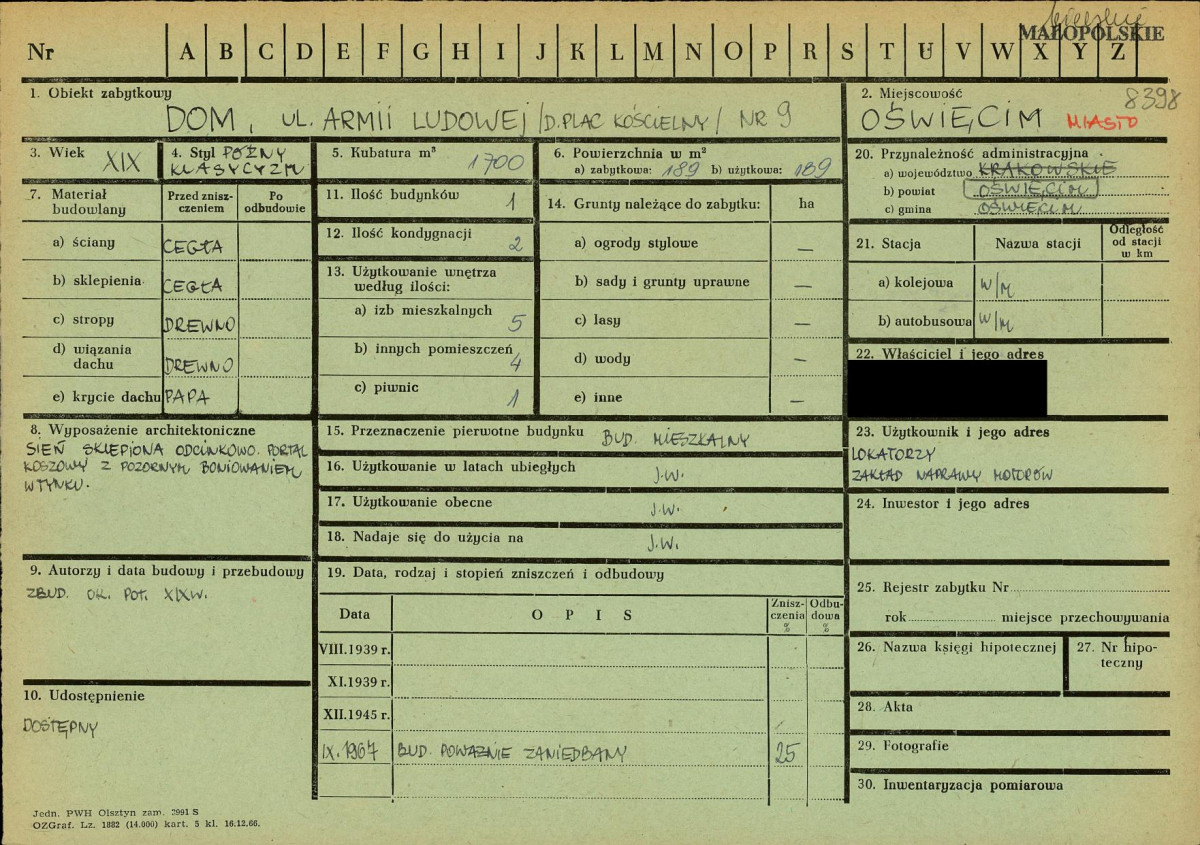 bielskie
MAŁOPOLSKIE
Nr A B C D E F G H I J K L M N O P R S T U V W X Y Z
1. Obiekt zabytkowy
DOM, UL. ARMII LUDOWEJ /D. PLAC KOŚCIELNY/ NR 9
2. Miejscowość
8398
OŚWIĘCIM MIASTO
3. Wiek XIX
4. Styl PÓŹNY
KLASYCYZM
5. Kubatura m³ 1700
6. Powierzchnia w m²
a) zabytkowa: 189 b) użytkowa: 189
20. Przynależność administracyjna
a) województwo KRAKOWSKIE
b) powiat OŚWIĘCIM
c) gmina OŚWIĘCIM
7. Materiał budowlany
Przed znisz-
czeniem
Po
odbudowie
a) ściany CEGŁA
b) sklepienia CEGŁA
c) stropy DREWNO
d) wiązania
dachu DREWNO
e) krycie dachu PAPA
11. Ilość budynków 1
12. Ilość kondygnacji 2
13. Użytkowanie wnętrza
według ilości:
a) izb mieszkalnych 5
b) innych pomieszczeń 4
c) piwnic 1
14. Grunty należące do zabytku: ha
a) ogrody stylowe —
b) sady i grunty uprawne —
c) lasy —
d) wody —
e) inne —
21. Stacja Nazwa stacji
Odległość
od stacji
w km
a) kolejowa W/M
b) autobusowa W/M
22. Właściciel i jego adres
8. Wyposażenie architektoniczne
SIEŃ SKLEPIONA ODCINKOWO. PORTAL
KOSZOWY Z POZORNYM BONIOWANIEM
W TYNKU.
15. Przeznaczenie pierwotne budynku BUD. MIESZKALNY
16. Użytkowanie w latach ubiegłych J.W.
17. Użytkowanie obecne J.W.
18. Nadaje się do użycia na J.W.
23. Użytkownik i jego adres
LOKATORZY
ZAKŁAD NAPRAWY MOTORÓW
24. Inwestor i jego adres
9. Autorzy i data budowy i przebudowy
ZBUD. OK. POŁ. XIX W.
19. Data, rodzaj i stopień zniszczeń i odbudowy
Data OPIS
Znisz-
czenia
%
Odbu-
dowa
%
VIII.1939 r.
XI.1939 r.
XII.1945 r.
IX.1967 BUD. POWAŻNIE ZANIEDBANY 25
25. Rejestr zabytku Nr
rok miejsce przechowywania
26. Nazwa księgi hipotecznej
27. Nr hipo-
teczny
10. Udostępnienie
DOSTĘPNY
28. Akta
29. Fotografie
30. Inwentaryzacja pomiarowa
Jedn. PWH Olsztyn zam. 3991 S
OZGraf. Lz. 1882 (14.000) kart. 5 kl. 16.12.66.